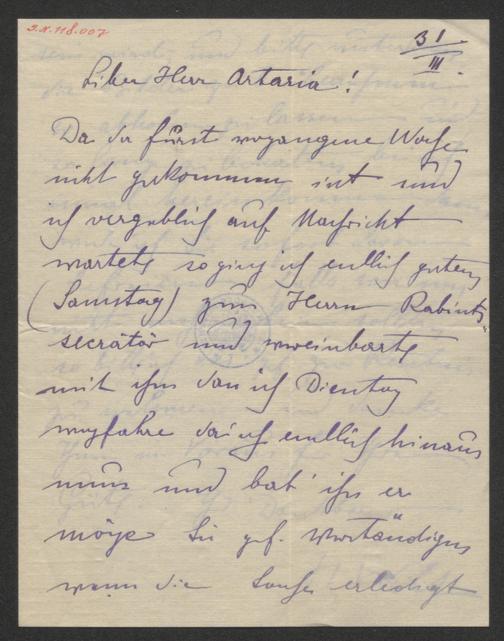 I.N. 118.007
31
III.
Lieber Herr Artaria!
Da der Fürst vergangene Woche
nicht gekommen ist und
ich vergeblich auf Nachricht
wartete so ging ich endlich gestern
(Samstag) zum Herrn Kabinets-
secretär und vereinbarte
mit ihm dass ich Dienstag
wegfahre da ich endlich hinaus
muss und bat ihn er
möge Sie gef. verständigen
wenn die Sache erledigt